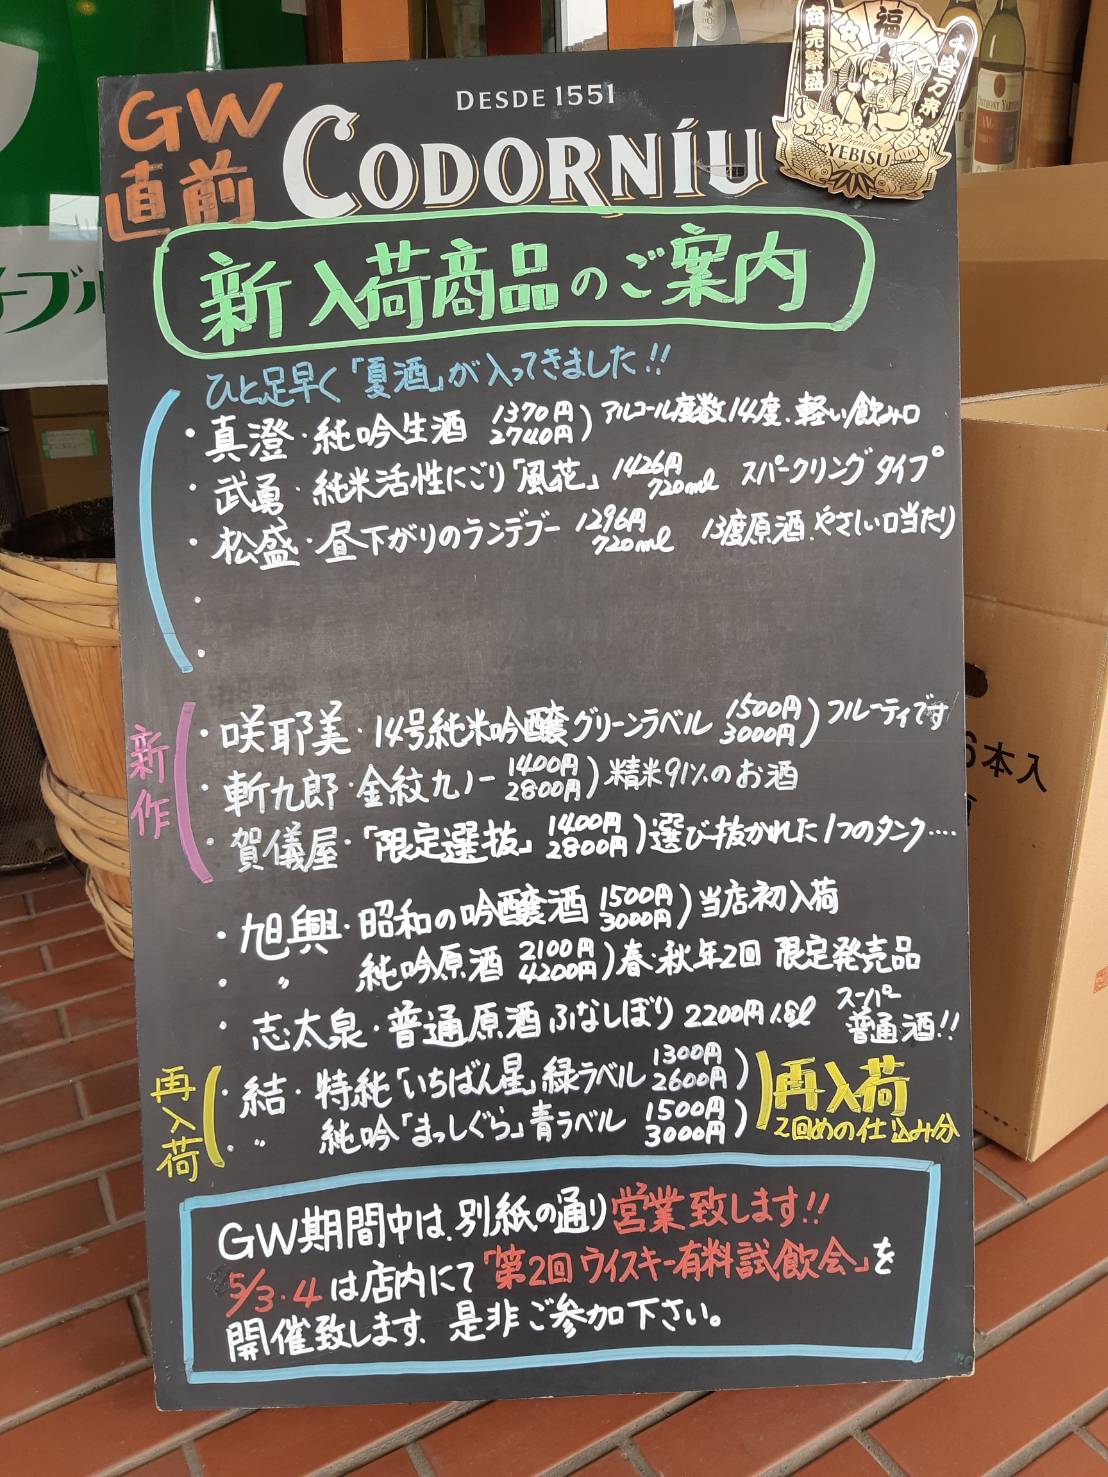 GW
直前
DESDE 1551
CODORNÍU
商売繁盛
福
千客万来
YEBISU
新入荷商品のご案内
ひと足早く「夏酒」が入ってきました!!
・真澄・純吟生酒 1370円 2740円) アルコール度数14度、軽い飲み口
・武勇・純米活性にごり「風花」 1426円 720ml スパークリングタイプ
・松盛・昼下がりのランデブー 1296円 720ml 13度原酒、やさしい口当たり
・
・
新作
・咲耶美・14号純米吟醸グリーンラベル 1500円 3000円) フルーティです
・斬九郎・金紋九ノ一 1400円 2800円) 精米91%のお酒
・賀儀屋・「限定選抜」 1400円 2800円) 選び抜かれた1つのタンク‥‥
・旭興・昭和の吟醸酒 1500円 3000円) 当店初入荷
・〃 純吟原酒 2100円 4200円) 春・秋年2回 限定発売品
・志太泉・普通原酒ふなしぼり 2200円 1.8l スーパー普通酒!!
再入荷
・結・特純「いちばん星」緑ラベル 1300円 2600円)
・〃 純吟「まっしぐら」青ラベル 1500円 3000円)
再入荷
2回めの仕込み分
GW期間中は、別紙の通り営業致します!!
5/3・4は店内にて「第2回ウイスキー有料試飲会」を
開催致します、是非ご参加下さい。
6本入
ーブル